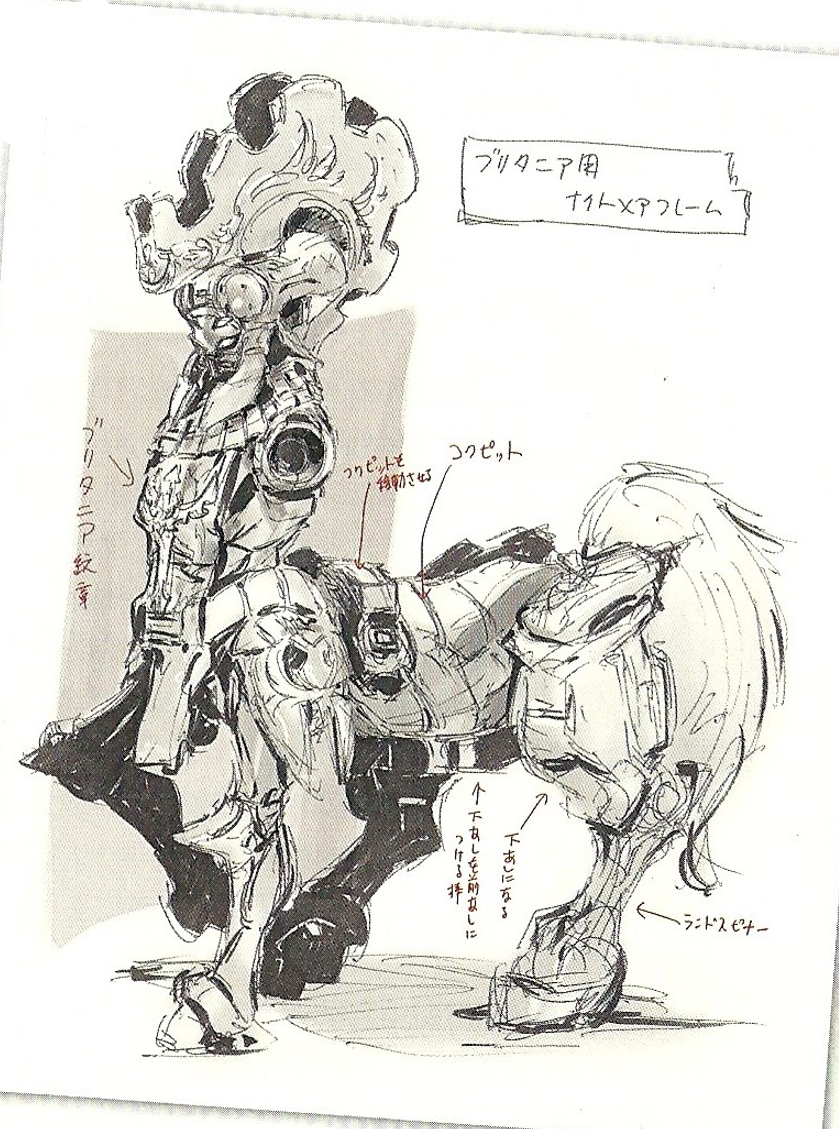 ブリタニア用
ナイトメアフレーム
コクピット
コクピットを
移動させる
ブリタニア紋章
下あしになる
ランドスピナー